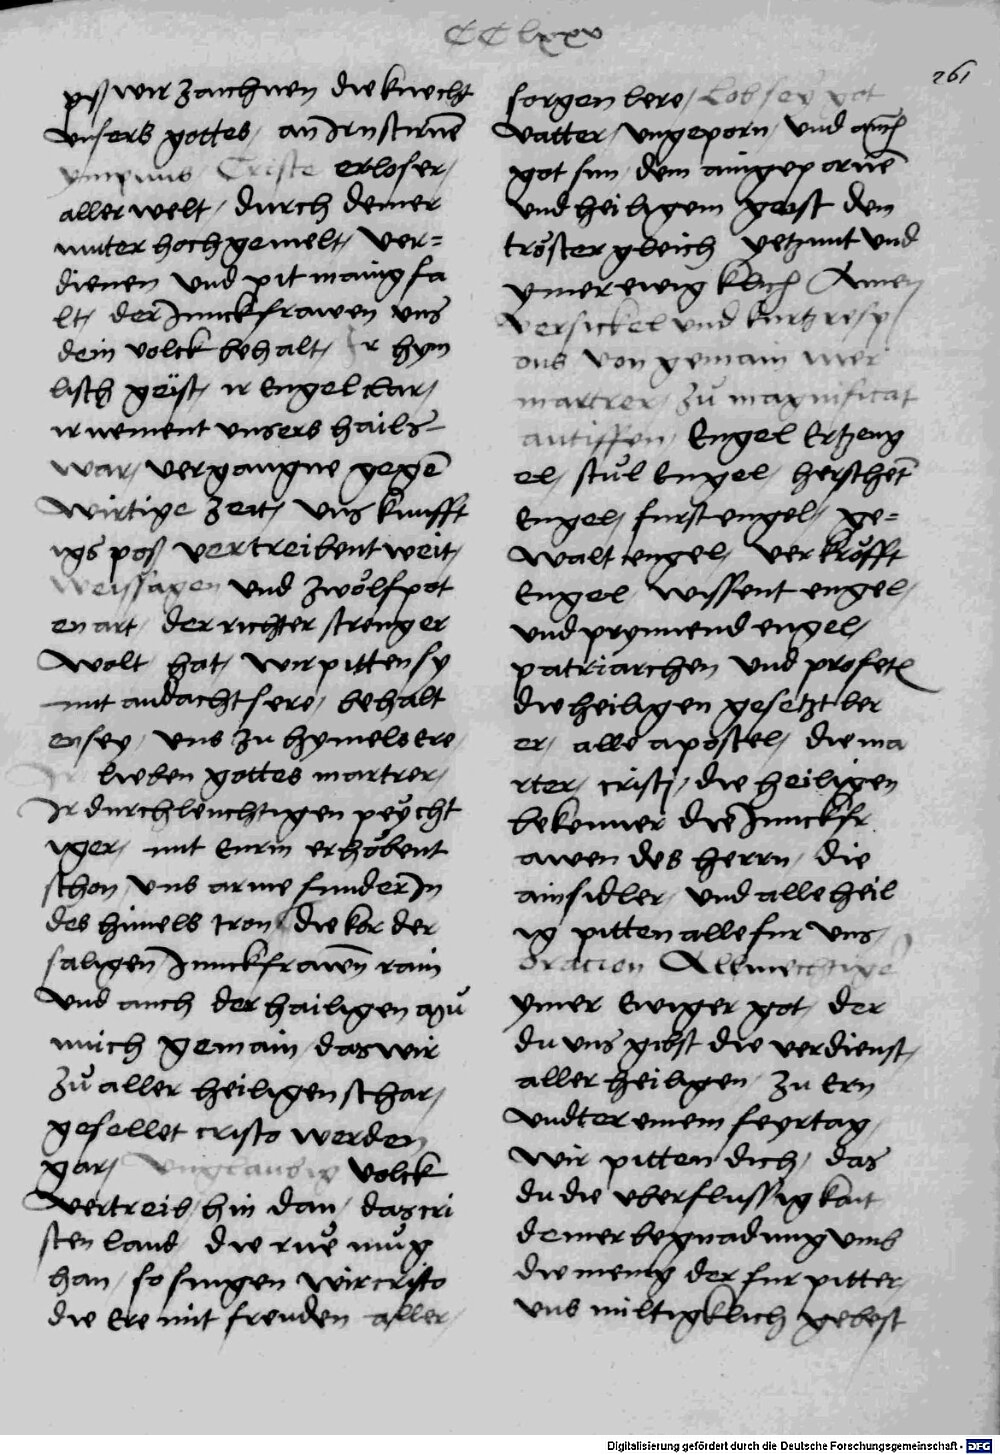 CClxxv
261
piß wir zaichnen die knecht
unsers gottes / an Irn stirnē
ympnus Criste erloser /
aller welt / durch deiner
muter hochgemelt / ver=
dienen und pit manigfa
lt / der Junckfrawen uns
dein volck behalt / Ir hym
lisch geist / ir Engel klar /
ir nement unsers hails
war / vergangne gegē
wirtige zeit / uns kunfft
igs poß vertreibent weit /
Weissagen und zwölfpot
en art / der richter strenger
wolt hat / wir pitten sy
mit andacht sere / behalt
en sey / uns zu hymels ere /
Ir lieben gottes martrer /
Ir durchleuchtigen peycht
iger / mit Eurm erhöbent
schon / uns arme sunder In
des himels tron / die kor der
saligen Junckfrawn rain
und auch der hailigen a zü
münch gemain / das wir
zü aller heiligen schar /
gesellet cristo werden
gar / Unglaubig volck
vertreib / hin dan / das cri
sten land / die rüe müg
han / so singen wir cristo
die Ere mit freuden aller /
sorgen lere / Lob sey got
vatter / ungeporn / und auch
got sun / dem aingepornē
und heiligem geist dem
tröster gleich yetzunt und
ymer ewigklich Amen
versickel und kurtz resp
ons von gemain mer
martrer / zu magnificat
antiffen / Engel Ertzeng
el / stül Engel / herschēt
Engel / furstengel / ge=
walt engel / verkröfft
Engel / wissent engel /
und prynnend engel /
patriarchen und profetē
die heiligen gesetzt ler
er / alle apostel / die ma
rter / cristi / die heiligen
bekenner die Junckfr
awen des herrn / die
ainsidler / und alle heil
ig pitten alle fur uns /
Oracion Allmechtige
ymer Ewiger got / der
du uns gibst die verdienst /
aller heiligen / zu Ern
undter einem feyrtag /
wir pitten dich / das
du die uberflussigkait
deiner begnadung umb
die menig der furpitter /
uns miltigklich gebest
Digitalisierung gefördert durch die Deutsche Forschungsgemeinschaft - DFG